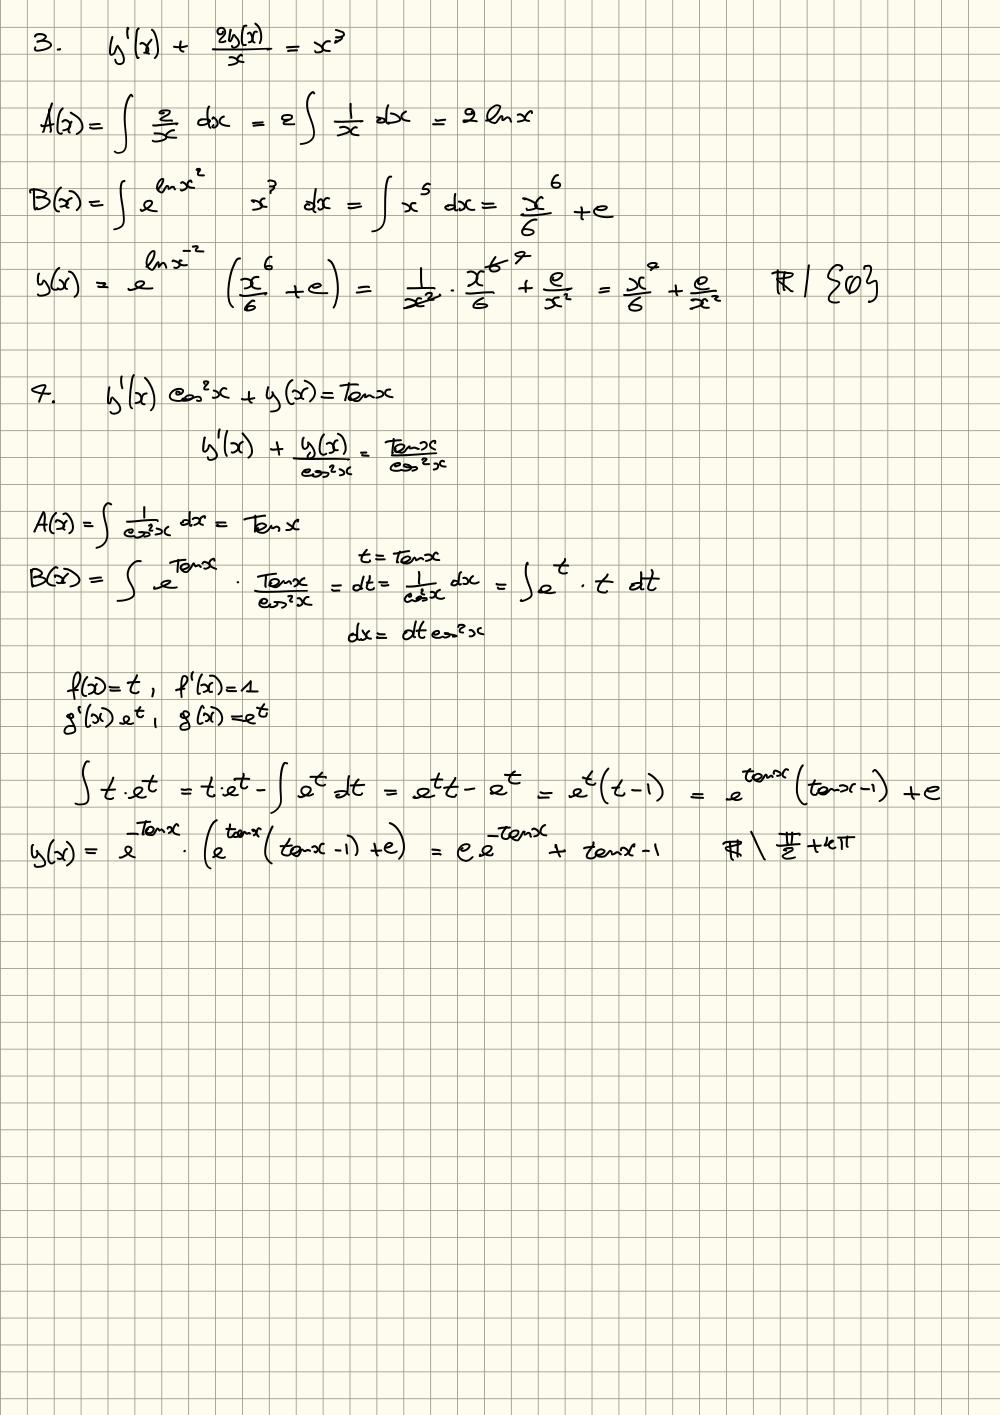 3. y'(x) + 2y(x)/x = x³
A(x) = ∫ 2/x dx = 2 ∫ 1/x dx = 2 ln x
B(x) = ∫ e^(ln x²) x³ dx = ∫ x⁵ dx = x⁶/6 + c
y(x) = e^(ln x⁻²) (x⁶/6 + c) = 1/x² · x⁶ ⁴/6 + c/x² = x⁴/6 + c/x² ℝ | {0}
4. y'(x) cos²x + y(x) = Tan x
y'(x) + y(x)/cos²x = Tan x/cos²x
A(x) = ∫ 1/cos²x dx = Tan x
B(x) = ∫ e^(Tan x) · Tan x/cos²x = t = Tan x dt = 1/cos²x dx = ∫ e^t · t dt
dx = dt cos²x
f(x) = t, f'(x) = 1
g'(x) e^t, g(x) = e^t
∫ t · e^t = t · e^t - ∫ e^t dt = e^t t - e^t = e^t (t - 1) = e^(tan x) (tan x - 1) + c
y(x) = e^(-Tan x) · (e^(tan x) (tan x - 1) + c) = c e^(-tan x) + tan x - 1 ℝ \ π/2 + kπ